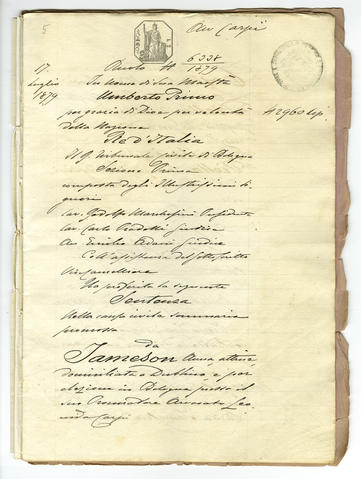 5
Avv Carpi
17
Luglio
1879
Ruolo N 6338
1879
In Nome di Sua Maestà
Umberto Primo
per grazia di Dio e per volontà
N 2960 Rep.
della Nazione
Re d'Italia
Il R. Tribunale Civile di Bologna
Sezione Prima
composto degli Illustrissimi Si
gnori
Cav. Presidente
Cav. Carlo Giudice
Avv. Emilio Giudice
Coll'assistenza del sottoscritto
Vicecancelliere
Ha proferita la seguente
Sentenza
Nella causa civile sommaria
promossa
da
Jameson Anna
domiciliata a Dublino e per
elezione in Bologna presso il
suo Procuratore Avvocato Leo
nida Carpi